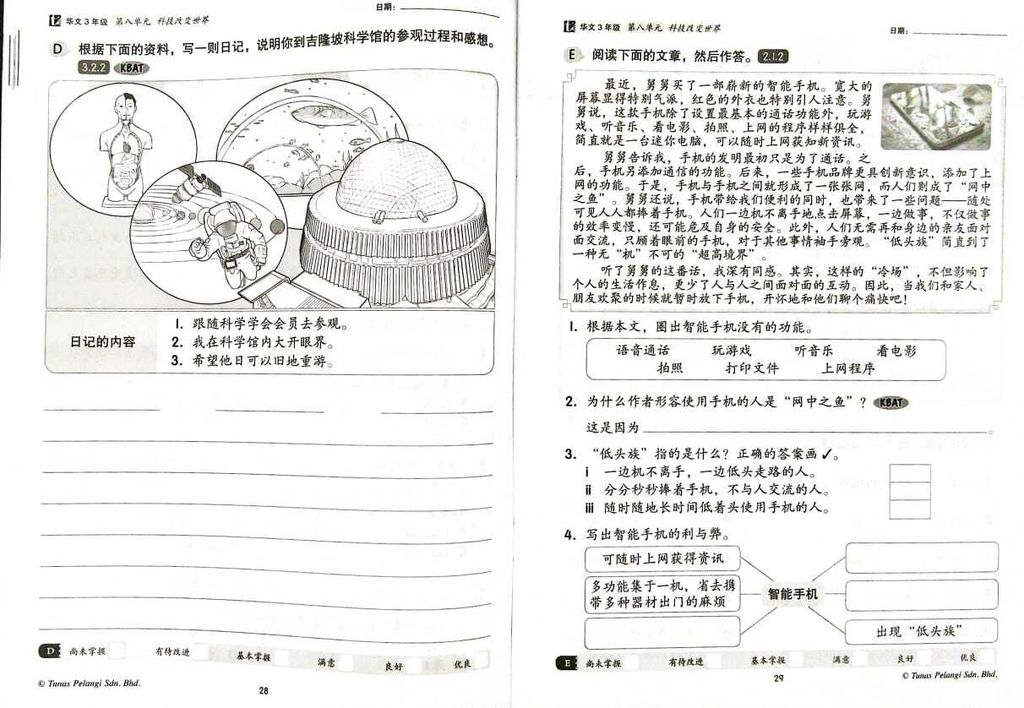 华文3年级 第八单元 科技改变世界
日期：
D 根据下面的资料，写一则日记，说明你到吉隆坡科学馆的参观过程和感想。
3.2.2 KBAT
日记的内容
1. 跟随科学学会会员去参观。
2. 我在科学馆内大开眼界。
3. 希望他日可以旧地重游。
D 尚未掌握 有待改进 基本掌握 满意 良好 优良
© Tunas Pelangi Sdn. Bhd.
28
华文3年级 第八单元 科技改变世界
日期：
E 阅读下面的文章，然后作答。 2.1.2
最近，舅舅买了一部崭新的智能手机。宽大的
屏幕显得特别气派，红色的外衣也特别引人注意。舅
舅说，这款手机除了设置最基本的通话功能外，玩游
戏、听音乐、看电影、拍照、上网的程序样样俱全，
简直就是一台迷你电脑，可以随时上网获知新资讯。
舅舅告诉我，手机的发明最初只是为了通话。之
后，手机另添加通信的功能。后来，一些手机品牌更具创新意识，添加了上
网的功能。于是，手机与手机之间就形成了一张张网，而人们则成了“网中
之鱼”。舅舅还说，手机带给我们便利的同时，也带来了一些问题——随处
可见人人都捧着手机。人们一边机不离手地点击屏幕，一边做事，不仅做事
的效率变慢，还可能危及自身的安全。此外，人们无需再和身边的亲友面对
面交流，只顾着眼前的手机，对于其他事情袖手旁观。“低头族”简直到了
一种无“机”不可的“超高境界”。
听了舅舅的这番话，我深有同感。其实，这样的“冷场”，不但影响了
个人的生活作息，更少了人与人之间面对面的互动。因此，当我们和家人、
朋友欢聚的时候就暂时放下手机，开怀地和他们聊个痛快吧！
1. 根据本文，圈出智能手机没有的功能。
语音通话 玩游戏 听音乐 看电影
拍照 打印文件 上网程序
2. 为什么作者形容使用手机的人是“网中之鱼”？ KBAT
这是因为 。
3. “低头族”指的是什么？正确的答案画✓。
i 一边机不离手，一边低头走路的人。
ii 分分秒秒捧着手机，不与人交流的人。
iii 随时随地长时间低着头使用手机的人。
4. 写出智能手机的利与弊。
可随时上网获得资讯
多功能集于一机，省去携
带多种器材出门的麻烦
智能手机
出现“低头族”
E 尚未掌握 有待改进 基本掌握 满意 良好 优良
29
© Tunas Pelangi Sdn. Bhd.